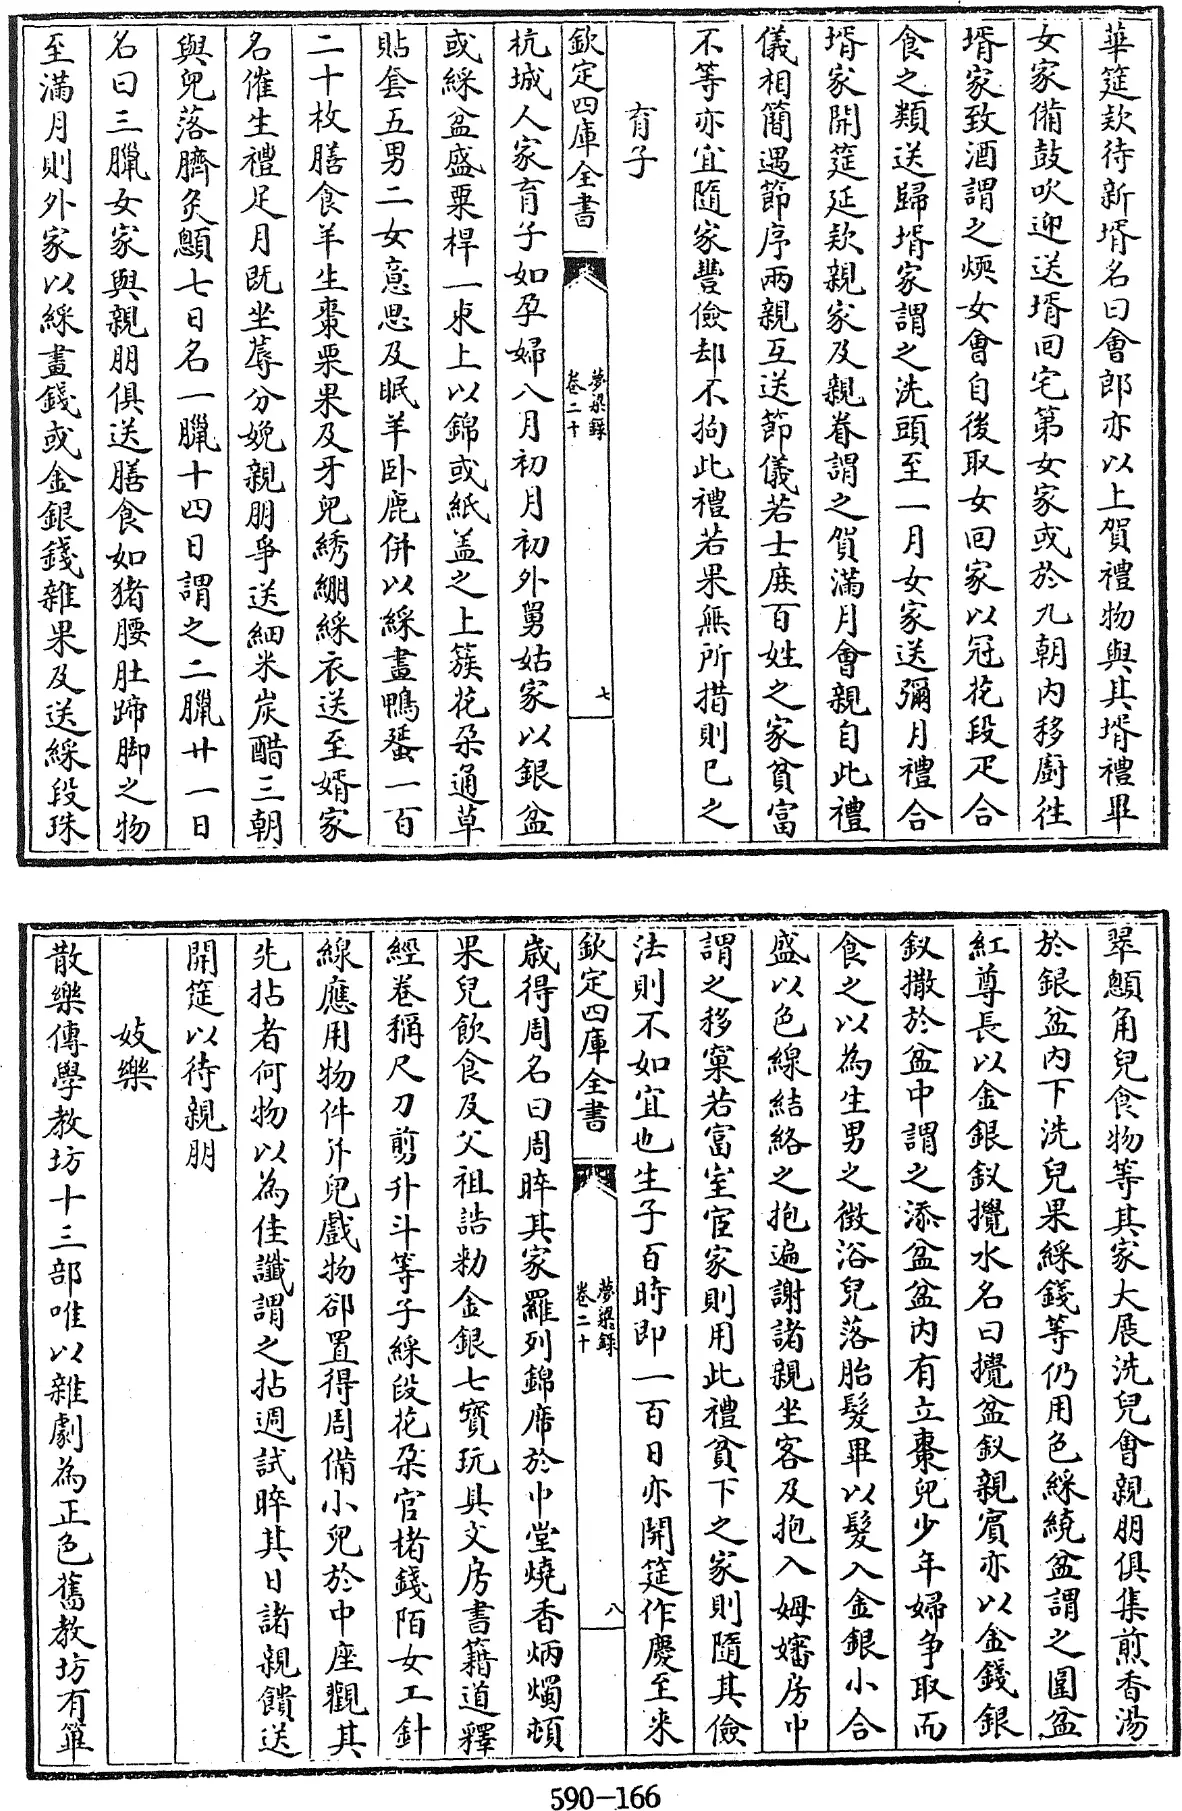 華筵欵待新壻名曰會郎亦以上賀禮物與其壻禮畢
女家備鼓吹迎送壻回宅第女家或於九朝内移廚徃
壻家致酒謂之煗女會自後取女回家以冠花段疋合
食之類送歸壻家謂之洗頭至一月女家送彌月禮合
壻家開筵延欵親家及親眷謂之賀滿月會親自此禮
儀相簡遇節序兩親互送節儀若士庶百姓之家貧富
不等亦宜隨家豐儉却不拘此禮若果無所措則已之
育子
欽定四庫全書
夢梁錄
卷二十
七
杭城人家育子如孕婦八月初月初外舅姑家以銀盆
或綵盆盛粟桿一束上以錦或紙盖之上簇花朶通草
貼套五男二女意思及眠羊卧鹿併以綵畫鴨蛋一百
二十枚膳食羊生棗栗果及牙兒綉綳綵衣送至婿家
名催生禮足月既坐蓐分娩親朋爭送細米炭醋三朝
與兒落臍炙顖七日名一臘十四日謂之二臘廿一日
名曰三臘女家與親朋俱送膳食如猪腰肚蹄脚之物
至滿月則外家以綵畫錢或金銀錢雜果及送綵段珠
翠顖角兒食物等其家大展洗兒會親朋俱集煎香湯
於銀盆内下洗兒果綵錢等仍用色綵繞盆謂之圍盆
紅尊長以金銀釵攪水名曰攪盆釵親賓亦以金錢銀
釵撒於盆中謂之添盆盆内有立棗兒少年婦争取而
食之以為生男之徵浴兒落胎髮畢以髮入金銀小合
盛以色線結絡之抱遍謝諸親坐客及抱入姆嬸房中
謂之移窠若富室宦家則用此禮貧下之家則隨其儉
法則不如宜也生子百時即一百日亦開筵作慶至來
欽定四庫全書
夢梁錄
卷二十
八
歳得周名曰周晬其家羅列錦席於中堂燒香炳燭頓
果兒飲食及父祖誥勅金銀七寳玩具文房書籍道釋
經卷稱尺刀剪升斗等子綵段花朶官楮錢陌女工針
線應用物件并兒戲物卻置得周備小兒於中座觀其
先拈者何物以為佳讖謂之拈週試晬其日諸親饋送
開筵以待親朋
妓樂
散樂傳學教坊十三部唯以雜劇為正色舊教坊有篳
590-166